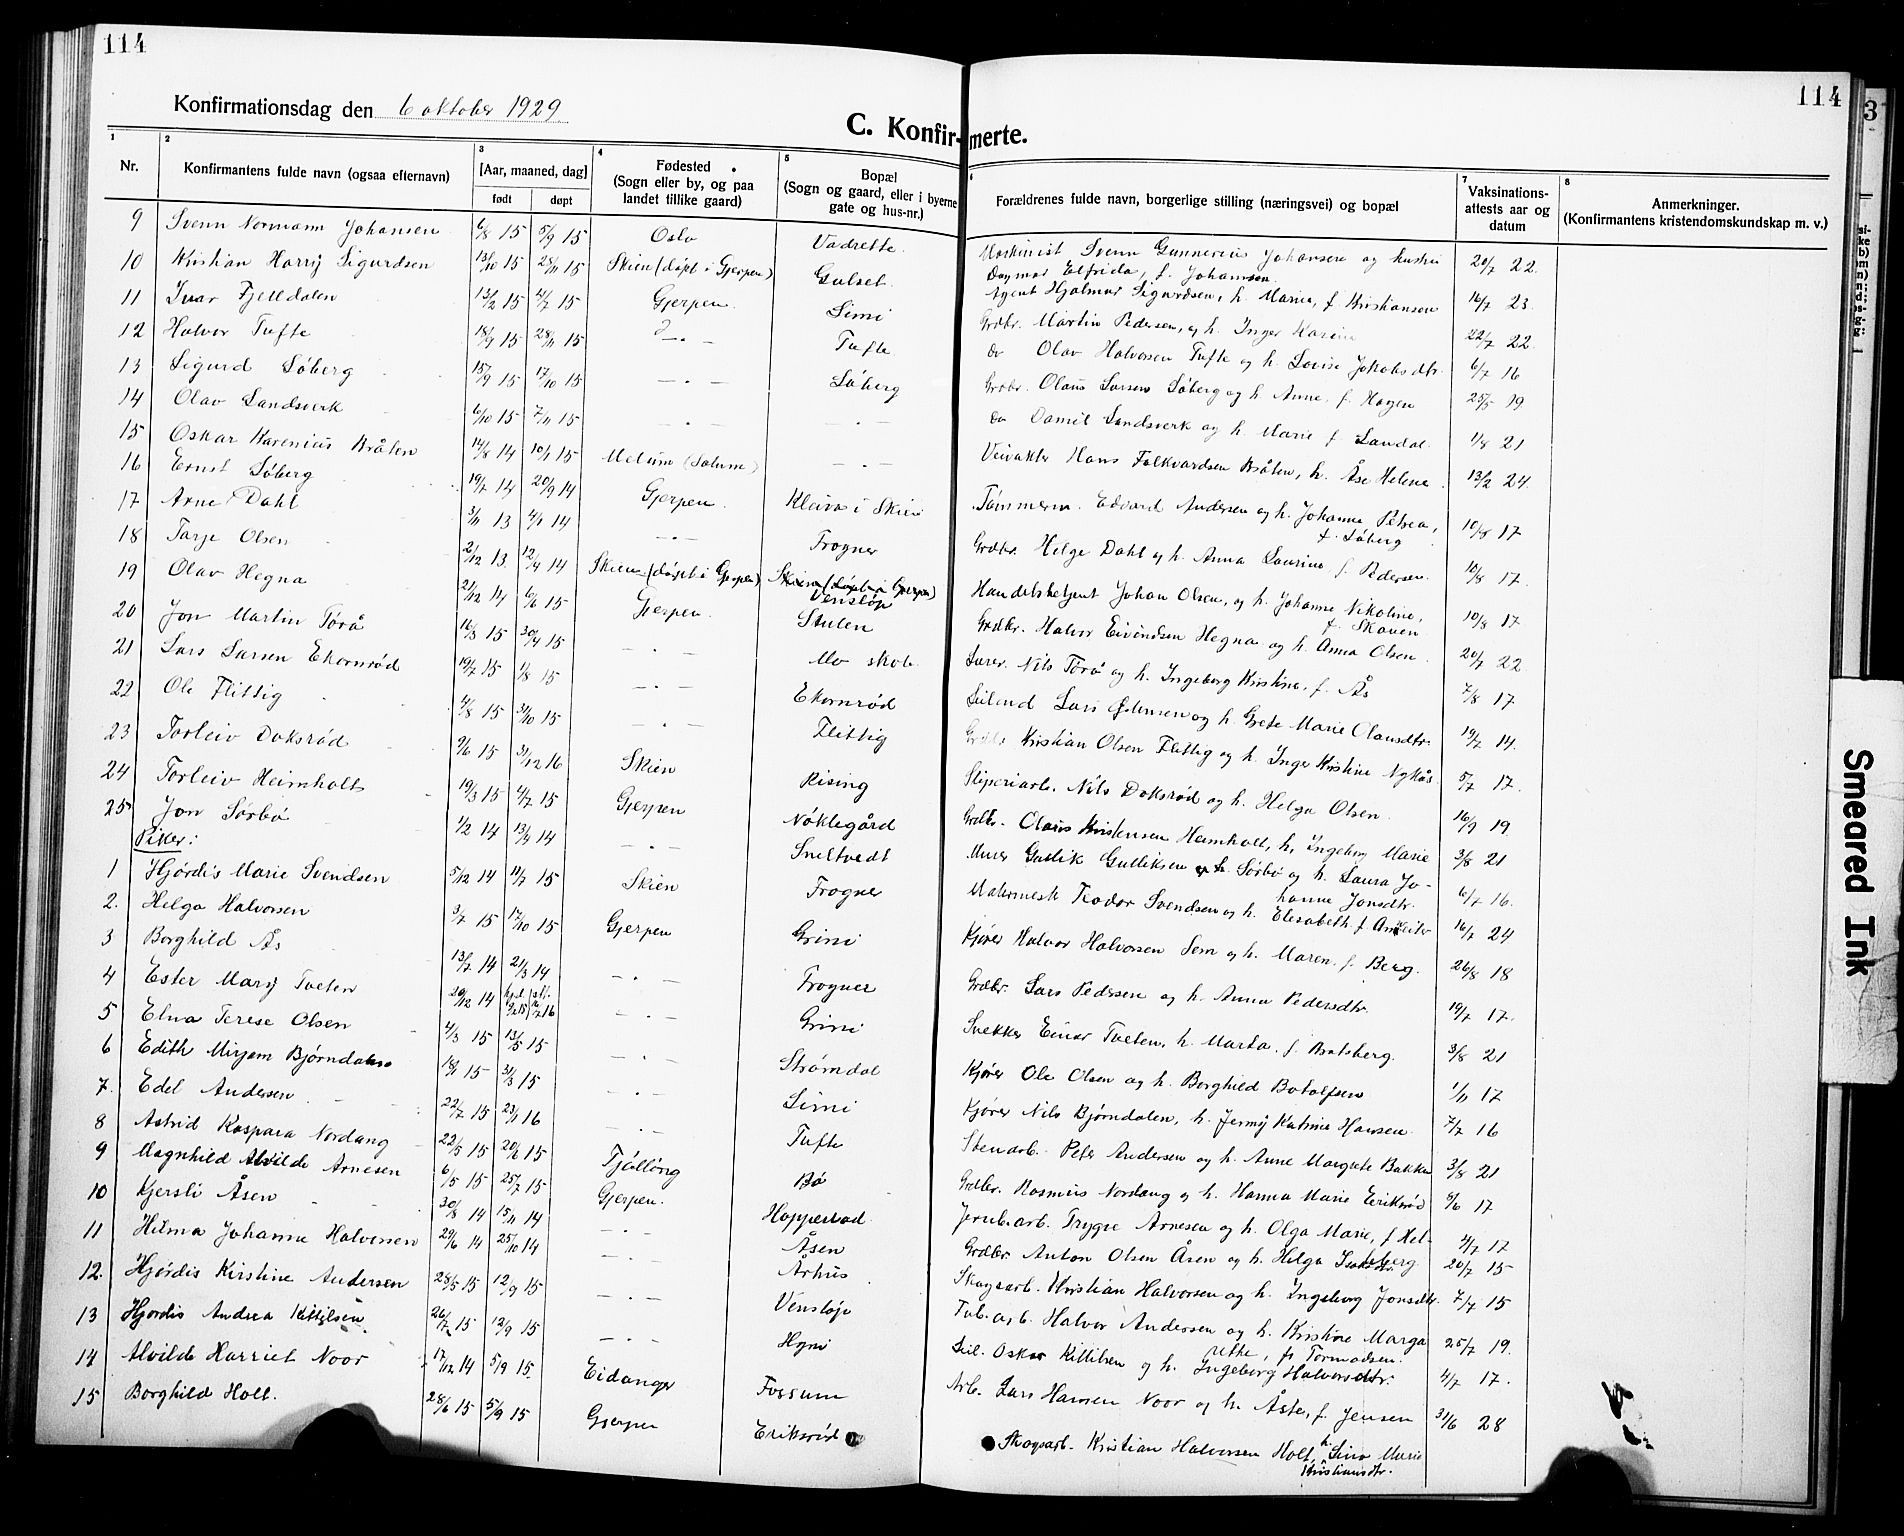 114
114
Konfirmationsdag den 6 oktober 1929
C. Konfirmerte.
1 2 3 4 5 6 7 8
Nr. Konfirmantens fulde navn (ogsaa efternavn) [Aar, maaned, dag] født døpt Fødested (Sogn eller by, og paa landet tillike gaard) Bopæl (Sogn og gaard, eller i byerne gate og hus-nr.) Forældrenes fulde navn, borgerlige stilling (næringsvei) og bopæl Vaksinations-attests aar og datum Anmerkninger. (Konfirmantens kristendomskundskap m. v.)
9 Svenn Normann Johansen 6/8 15 5/9 15 Oslo Vadrette Maskinist Svenn Gunnerius Johansen og hustru Dagmar Elfrida, f. Johannsen 20/7 22
10 Kristian Harry Sigurdsen 13/10 15 28/11 15 Skien (døpt i Gjerpen) Gulset Agent Hjalmar Sigurdsen, h. Marie, f. Kristiansen 16/7 23
11 Ivar Fjelldalen 13/2 15 4/7 15 Gjerpen Limi Grdbr. Martin Pedersen, og h. Inger Karine 22/7 22
12 Halvor Tufte 18/9 15 28/11 15 — . — Tufte do Olav Halvorsen Tufte og h. Lovise Jakobsdtr. 6/7 16
13 Sigurd Løberg 15/9 15 17/10 15 — . — Løberg Grdbr. Olaus Larsen Løberg og h. Anne, f. Hagen 25/5 19
14 Olav Landsverk 6/10 15 7/11 15 — . — — . — do Daniel Landsverk og h. Marie f. Landal 1/8 21
15 Oskar Karenius Bråten 14/8 14 10/1 15 Melum (Solum) — . — Veivakter Hans Folkvardsen Bråten, h. Åse Helene 13/2 24
16 Ernst Løberg 19/7 14 20/9 14 Gjerpen Kleiva i Skien Tømmerm. Edvard Andersen og h. Johanne Petrea, f. Løberg 10/8 17
17 Arne Dahl 3/11 13 4/1 14 — . — Frogner Grdbr. Helge Dahl og h. Anna Laurine f. Pedersen 10/8 17
18 Tarje Olsen 2/12 13 12/4 14 Skien (døpt i Gjerpen) Venstøp Handelsbetjent Johan Olsen, og h. Johanne Nikoline, f. Skauen 10/8 17
19 Olav Hegna 21/12 14 6/6 15 Gjerpen Stulen Grdbr. Halvor Eivindsen Hegna og h. Anna Olsen 20/7 22
20 Jon Martin Torå 16/3 15 30/4 15 — . — Mo skole Lærer Nils Torå og h. Ingeborg Kristine, f. Ås 7/8 17
21 Lars Larsen Ekornrød 19/7 15 1/8 15 — . — Ekornrød Leilend Lars Johnsen og h. Grete Marie Olausdtr. 19/7 14
22 Ole Flittig 4/8 15 31/10 15 — . — Flittig Grdbr. Kristian Olsen Flittig og h. Inger Kristine Nykås 5/7 17
23 Torleiv Doksrød 9/6 15 31/12 16 Skien Rising Sliperiarb. Nils Doksrød og h. Helga Olsen 16/9 19
24 Torleiv Heimholt 19/3 15 4/7 15 Gjerpen Nøklegård Grdbr. Olaus Kristensen Hemholt, h. Ingeborg Marie 3/8 21
25 Jon Sørbø 1/2 14 13/4 14 — . — Sneltvedt Murer Gullik Gulliksen Sørbø og h. Laura Johanne Jonsdtr. 6/7 16
Piker:
1 Hjørdis Marie Svendsen 5/12 14 11/7 15 Skien Frogner Malermestr. Teodor Svendsen og h. Elisabeth f. 16/7 24
2. Helga Halvorsen 3/7 15 17/10 15 Gjerpen Grini Kjører Halvor Halvorsen Sem og h. Maren, f. Berg. 26/8 18
3 Borghild Ås 13/7 14 21/3 14 — . — Frogner Grdbr. Lars Pedersen og h. Anna Pedersdtr. 19/7 17
4 Ester Mary Tveten 20/12 14 Grini Snekker Einar Tveten, h. Marta, f. Bratsberg. 3/8 21
5 Elna Terese Olsen 4/3 15 13/5 15 — . — Strømdal Kjører Ole Olsen og h. Borghild Botolfsen 1/11 17
6 Edith Mirjam Bjørndalen 18/1 15 31/3 15 — . — Limi Kjører Nils Bjørndalen, h. Jenny Katrine Hansen 7/7 16
7. Edel Andersen 22/7 15 23/11 16 — . — Tufte Stenarb. Peter Andersen og h. Anne Margrete Bakken 3/8 21
8 Astrid Kaspara Nordang 22/5 15 20/6 15 Tjølling Bø Grdbr. Rasmus Nordang og h. Hanna Marie Eriksrød 6/6 17
9 Magnhild Alvilde Arnesen 6/5 15 25/7 15 Gjerpen Hoppestad Jernb.arb. Trygve Arnesen og h. Olga Marie, f. 4/7 17
10 Kjersti Åsen 30/8 14 15/11 14 — . — Åsen Grdbr. Anton Olsen Åsen og h. Helga 20/7 15
11 Hilma Johanne Halvorsen 29/6 14 25/10 14 — . — Århus Skogsarb. Kristian Halvorsen og h. Ingeborg Jonsdtr. 7/7 15
12. Hjørdis Kirstine Andersen 28/5 15 12/9 15 — . — Venstøp Fab.arb. Halvor Andersen og h. Kristine Margarethe, f. Tormodsen. 25/7 19
13 Hjordis Andrea Kittilsen 26/7 15 12/9 15 — . — Hyni Leil. Oskar Kittilsen og h. Ingeborg Halvorsdtr. 4/7 17
14 Alvilde Harriet Noor 17/12 14 5/9 15 Eidanger Fossum Arb. Lars Hansen Noor og h. Åste, f. Jensen 31/6 28
15 Borghild Holt. 28/6 15 5/9 15 Gjerpen Eriksrød Skogsarb. Kristian Halvorsen Holt, h. Lina Marie Kristiansdtr.
Smeared Ink